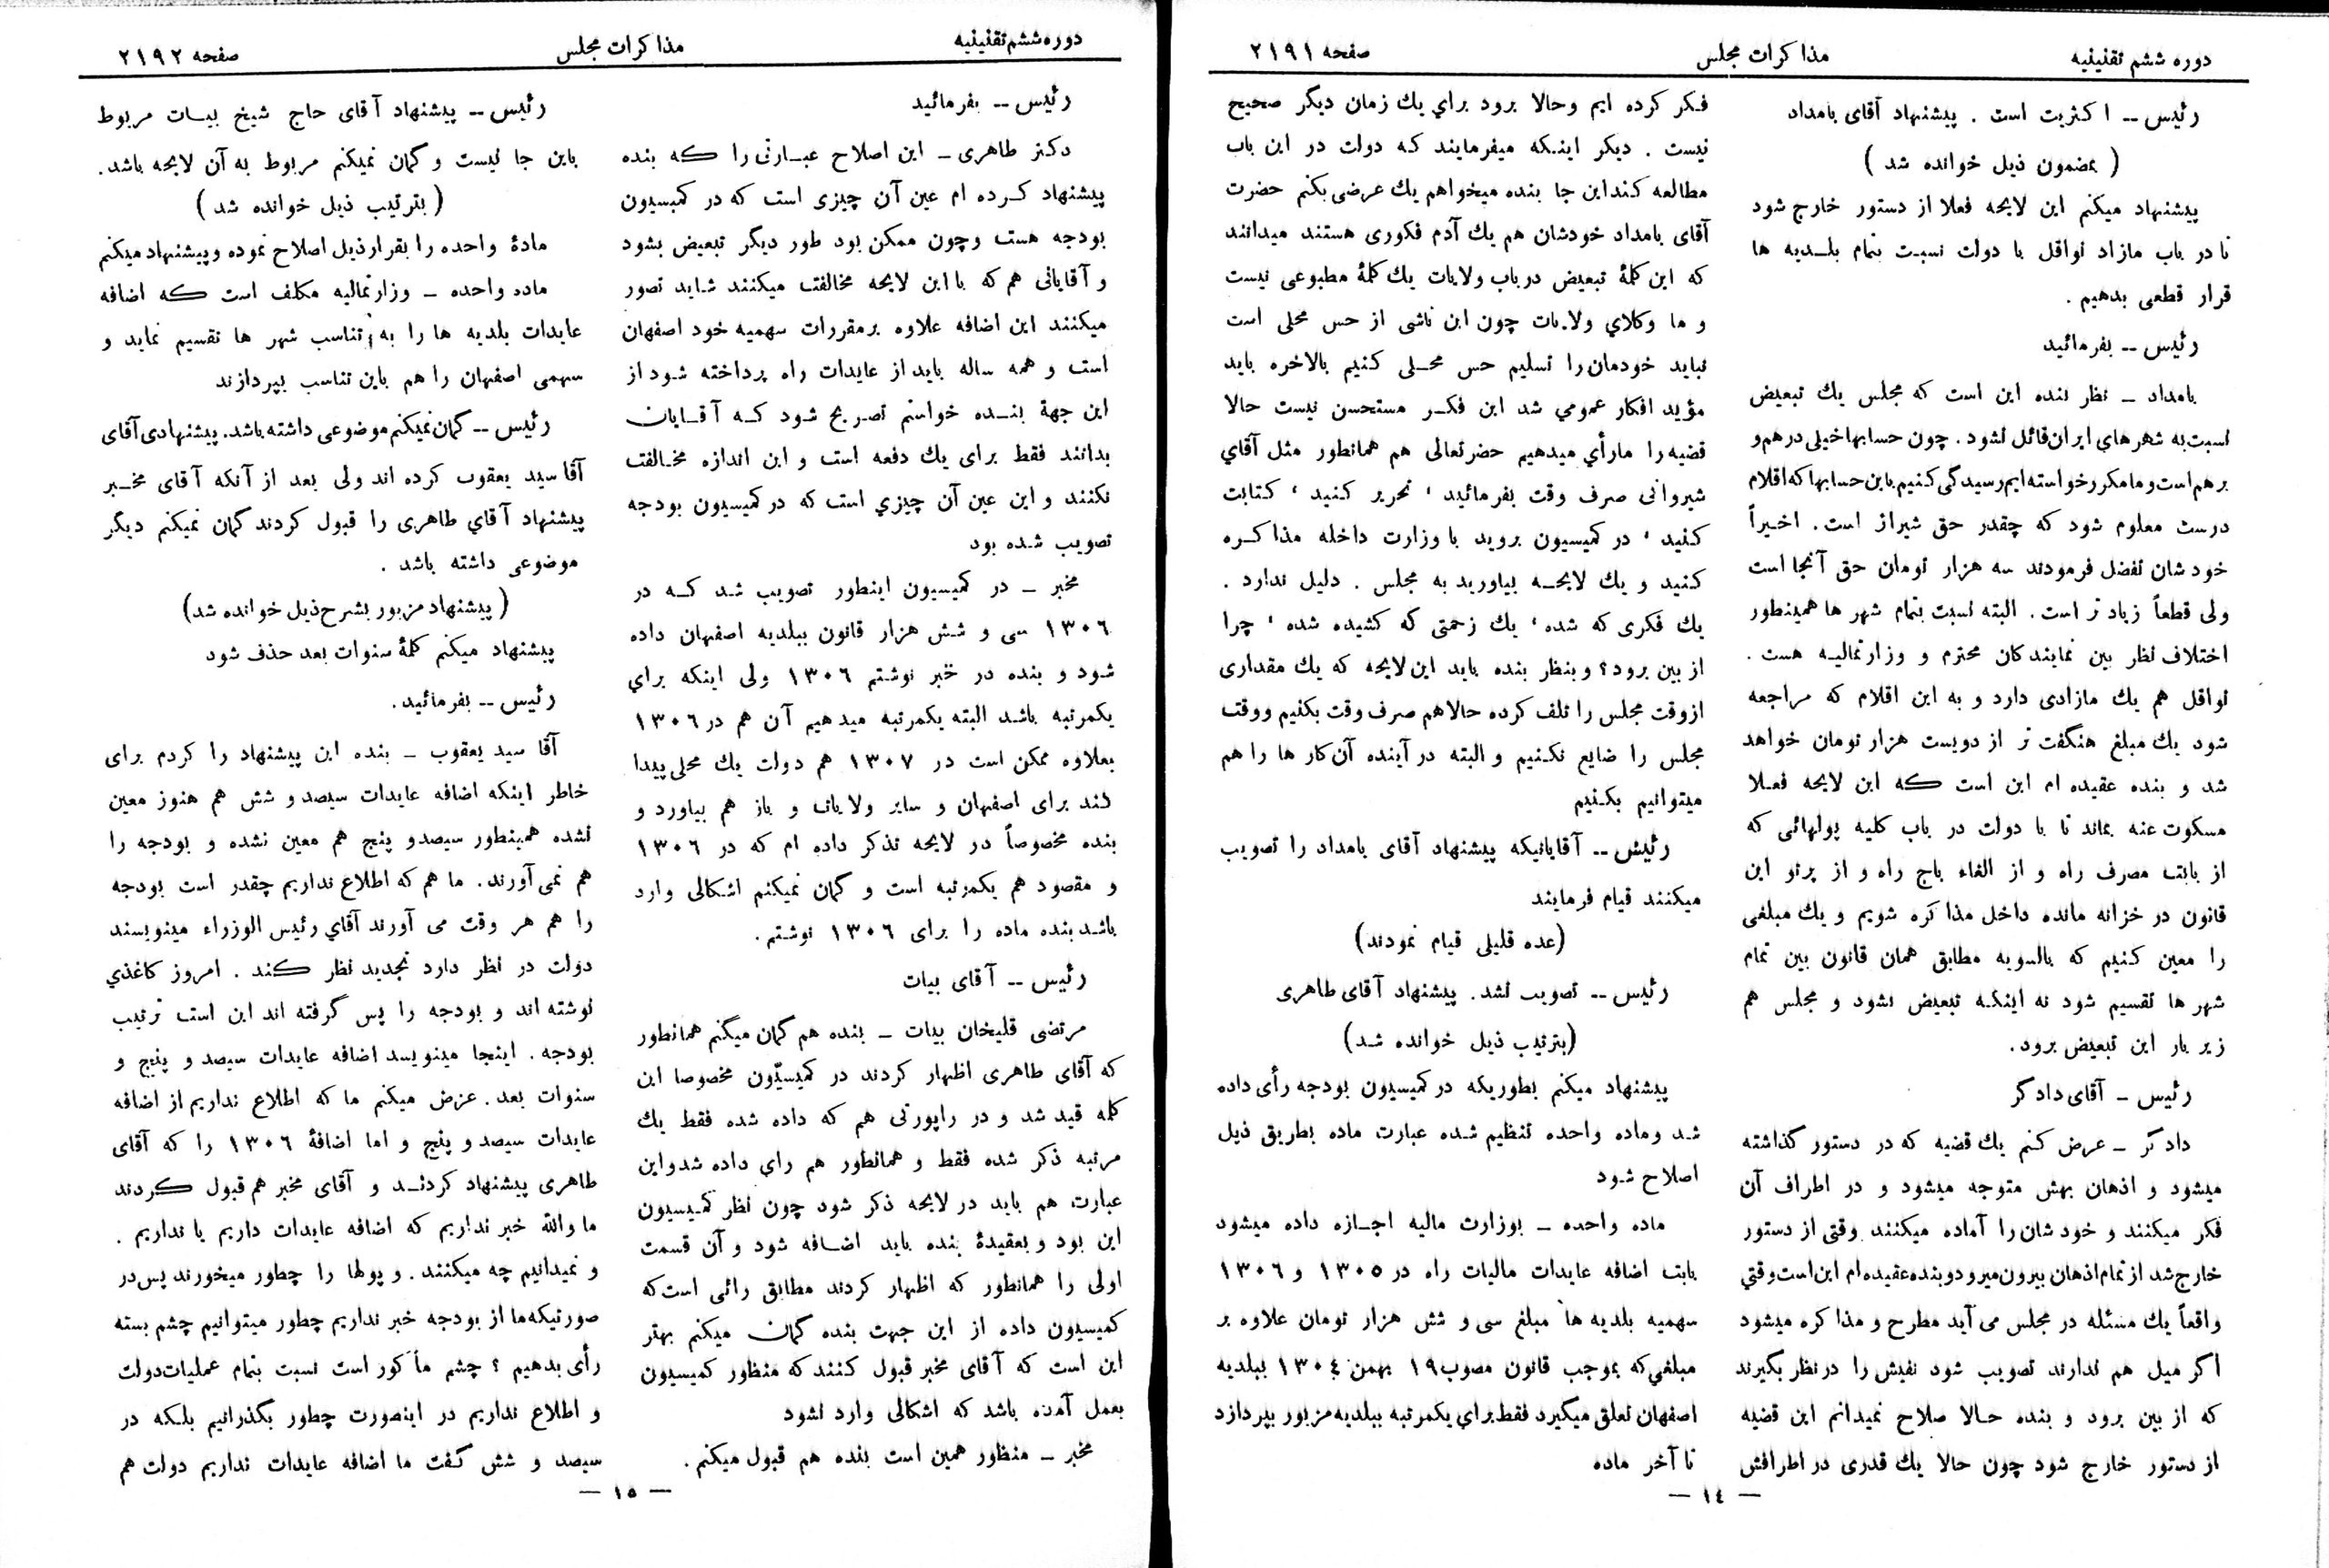 دوره ششم تقنینیه
مذاکرات مجلس
صفحه ۲۱۹۱
رئیس -- اکثریت است . پیشنهاد آقای بامداد
( بمضمون ذیل خوانده شد )
پیشنهاد میکنم این لایحه فعلا از دستور خارج شود
تا در باب مازاد نواقل با دولت نسبت بتمام بلدیه ها
قرار قطعی بدهیم .
رئیس -- بفرمائید
بامداد - نظر بنده این است که مجلس یك تبعیض
نسبت به شهرهای ایران قائل نشود . چون حسابها خیلی درهم و
برهم است و ما مکرر خواسته ایم رسیدگی کنیم باین حسابها که اقلام
درست معلوم شود که چقدر حق شیراز است . اخیراً
خودشان تفضل فرمودند سه هزار تومان حق آنجا است
ولی قطعاً زیاد تر است . البته نسبت بتمام شهر ها همینطور
اختلاف نظر بین نمایندکان محترم و وزارتمالیه هست .
نواقل هم یك مازادی دارد و به این اقلام که مراجعه
شود یك مبلغ هنگفت تر از دویست هزار تومان خواهد
شد و بنده عقیده ام این است که این لایحه فعلا
مسکوت عنه بماند تا با دولت در باب کلیه پولهائی که
از بابت مصرف راه و از الغاء باج راه و از پرتو این
قانون در خزانه مانده داخل مذاکره شویم و یك مبلغی
را معین کنیم که بالسویه مطابق همان قانون بین تمام
شهر ها تقسیم شود نه اینکه تبعیض نشود و مجلس هم
زیر بار این تبعیض برود .
رئیس - آقای دادگر
دادگر - عرض کنم یك قضیه که در دستور گذاشته
میشود و اذهان بهش متوجه میشود و در اطراف آن
فکر میکنند و خودشان را آماده میکنند وقتی از دستور
خارج شد از تمام اذهان بیرون میرود و بنده عقیده ام این است وقتي
واقعاً یك مسئله در مجلس می آید مطرح و مذاکره میشود
اگر میل هم ندارند تصویب شود نفیش را در نظر بگیرند
که از بین برود و بنده حالا صلاح نمیدانم این قضیه
از دستور خارج شود چون حالا یك قدری در اطرافش
فکر کرده ایم وحالا برود براي یك زمان دیگر صحیح
نیست . دیکر اینکه میفرمایند که دولت در این باب
مطالعه کند این جا بنده میخواهم یك عرضی بکنم حضرت
آقای بامداد خودشان هم یك آدم فکوری هستند میدانند
که این کلمۀ تبعیض در باب ولایات یك کلمۀ مطبوعی نیست
و ما وکلاي ولایات چون این ناشی از حس محلی است
نباید خودمان را تسلیم حس محلی کنیم بالاخره باید
مؤید افکار عمومي شد این فکر مستحسن نیست حالا
قضیه را ما رأي میدهیم حضرتعالی هم همانطور مثل آقاي
شیروانی صرف وقت بفرمائید ، تحریر کنید ، کتابت
کنید ، در کمیسیون بروید با وزارت داخله مذاکره
کنید و یك لایحه بیاورید به مجلس . دلیل ندارد .
یك فکری که شده ، یك زحمتی که کشیده شده ، چرا
از بین برود ؟ و بنظر بنده باید این لایحه که یك مقداری
از وقت مجلس را تلف کرده حالاهم صرف وقت بکنیم ووقت
مجلس را ضایع نکنیم و البته در آینده آن کار ها را هم
میتوانیم بکنیم
رئیش -- آقایانیکه پیشنهاد آقای بامداد را تصویب
میکنند قیام فرمایند
(عده قلیلی قیام نمودند)
رئیس -- تصویب نشد . پیشنهاد آقای طاهری
(بترتیب ذیل خوانده شد)
پیشنهاد میکنم بطوریکه در کمیسیون بودجه رأی داده
شد وماده واحده تنظیم شده عبارت ماده بطریق ذیل
اصلاح شود
ماده واحده - بوزارت مالیه اجازه داده میشود
بابت اضافه عایدات مالیات راه در ۱۳۰۵ و ۱۳۰۶
سهمیه بلدیه ها مبلغ سی و شش هزار تومان علاوه بر
مبلغي که بموجب قانون مصوب ۱۹ بهمن ۱۳۰٤ ببلدیه
اصفهان تعلق میگیرد فقط براي یکمرتبه ببلدیه مزبور بپردازد
تا آخر ماده
— ۱٤ —
دوره ششم تقنینیه
مذاکرات مجلس
صفحه ۲۱۹۲
رئیس -- بفرمائید
دکتر طاهری - این اصلاح عبارتی را که بنده
پیشنهاد کرده ام عین آن چیزی است که در کمیسیون
بودجه هست وچون ممکن بود طور دیگر تبعیض بشود
و آقایانی هم که با این لایحه مخالفت میکنند شاید تصور
میکنند این اضافه علاوه بر مقررات سهمیه خود اصفهان
است و همه ساله باید از عایدات راه پرداخته شود از
این جهة بنده خواستم تصریح شود که آقایان
بدانند فقط برای یك دفعه است و این اندازه مخالفت
نکنند و این عین آن چیزي است که در کمیسیون بودجه
تصویب شده بود
مخبر - در کمیسیون اینطور تصویب شد که در
۱۳۰۶ سی و شش هزار قانون ببلدیه اصفهان داده
شود و بنده در خبر نوشتم ۱۳۰۶ ولی اینکه براي
یکمرتبه باشد البته یکمرتبه میدهیم آن هم در ۱۳۰۶
بعلاوه ممکن است در ۱۳۰۷ هم دولت یك محلی پیدا
کند برای اصفهان و سایر ولایات و باز هم بیاورد و
بنده مخصوصاً در لایحه تذکر داده ام که در ۱۳۰۶
و مقصود هم یکمرتبه است و گمان نمیکنم اشکالی وارد
باشد بنده ماده را برای ۱۳۰۶ نوشتم .
رئیس -- آقای بیات
مرتضی قلیخان بیات - بنده هم گمان میکنم همانطور
که آقای طاهری اظهار کردند در کمیسیون مخصوصا این
کلمه قید شد و در راپورتی هم که داده شده فقط یك
مرتبه ذکر شده فقط و همانطور هم رای داده شد واین
عبارت هم باید در لایحه ذکر شود چون نظر کمیسیون
این بود و بعقیدۀ بنده باید اضافه شود و آن قسمت
اولی را همانطور که اظهار کردند مطابق رائی است که
کمیسیون داده از این جهت بنده گمان میکنم بهتر
این است که آقای مخبر قبول کنند که منظور کمیسیون
بعمل آمده باشد که اشکالی وارد نشود
مخبر - منظور همین است بنده هم قبول میکنم .
رئیس -- پیشنهاد آقای حاج شیخ بیات مربوط
باین جا نیست و گمان نمیکنم مربوط به آن لایحه باشد .
( بترتیب ذیل خوانده شد )
مادۀ واحده را بقرار ذیل اصلاح نموده وپیشنهاد میکنم
ماده واحده - وزارتمالیه مکلف است که اضافه
عایدات بلدیه ها را به تناسب شهر ها تقسیم نماید و
سهمی اصفهان را هم باین تناسب بپردازند
رئیس -- گمان نمیکنم موضوعی داشته باشد . پیشنهادی آقای
آقا سید یعقوب کرده اند ولی بعد از آنکه آقای مخبر
پیشنهاد آقاي طاهری را قبول کردند گمان نمیکنم دیگر
موضوعی داشته باشد .
(پیشنهاد مزبور بشرح ذیل خوانده شد)
پیشنهاد میکنم کلمۀ سنوات بعد حذف شود
رئیس -- بفرمائید .
آقا سید یعقوب - بنده این پیشنهاد را کردم برای
خاطر اینکه اضافه عایدات سیصد و شش هم هنوز معین
نشده همینطور سیصدو پنج هم معین نشده و بودجه را
هم نمی آورند . ما هم که اطلاع نداریم چقدر است بودجه
را هم هر وقت می آورند آقاي رئیس الوزراء مینویسند
دولت در نظر دارد تجدید نظر کند . امروز کاغذي
نوشته اند و بودجه را پس گرفته اند این است ترتیب
بودجه . اینجا مینویسد اضافه عایدات سیصد و پنج و
سنوات بعد . عرض میکنم ما که اطلاع نداریم از اضافه
عایدات سیصد و پنج و اما اضافۀ ۱۳۰۶ را که آقای
طاهری پیشنهاد کردند و آقای مخبر هم قبول کردند
ما والله خبر نداریم که اضافه عایدات داریم یا نداریم .
و نمیدانیم چه میکنند . و پولها را چطور میخورند پس در
صورتیکه ما از بودجه خبر نداریم چطور میتوانیم چشم بسته
رأی بدهیم ؟ چشم ما کور است نسبت بتمام عملیات دولت
و اطلاع نداریم در اینصورت چطور بگذرانیم بلکه در
سیصد و شش گفت ما اضافه عایدات نداریم دولت هم
— ۱٥ —